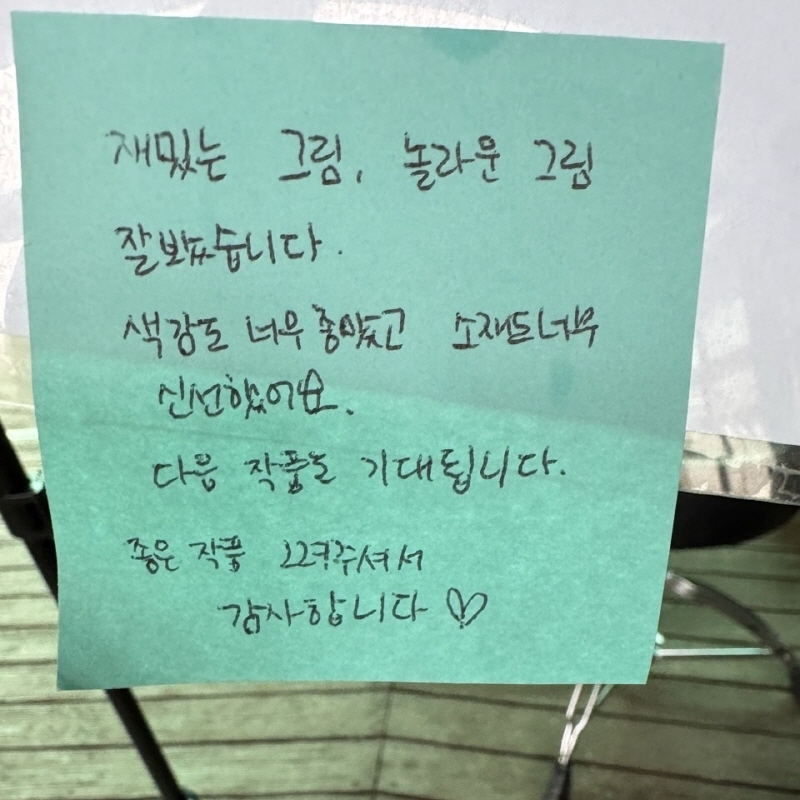 재밌는 그림, 놀라운 그림
잘봤습니다.
색감도 너무 좋았고 소재도 너무
신선했어요.
다음 작품도 기대됩니다.
좋은 작품 그려주셔서
감사합니다 ♡